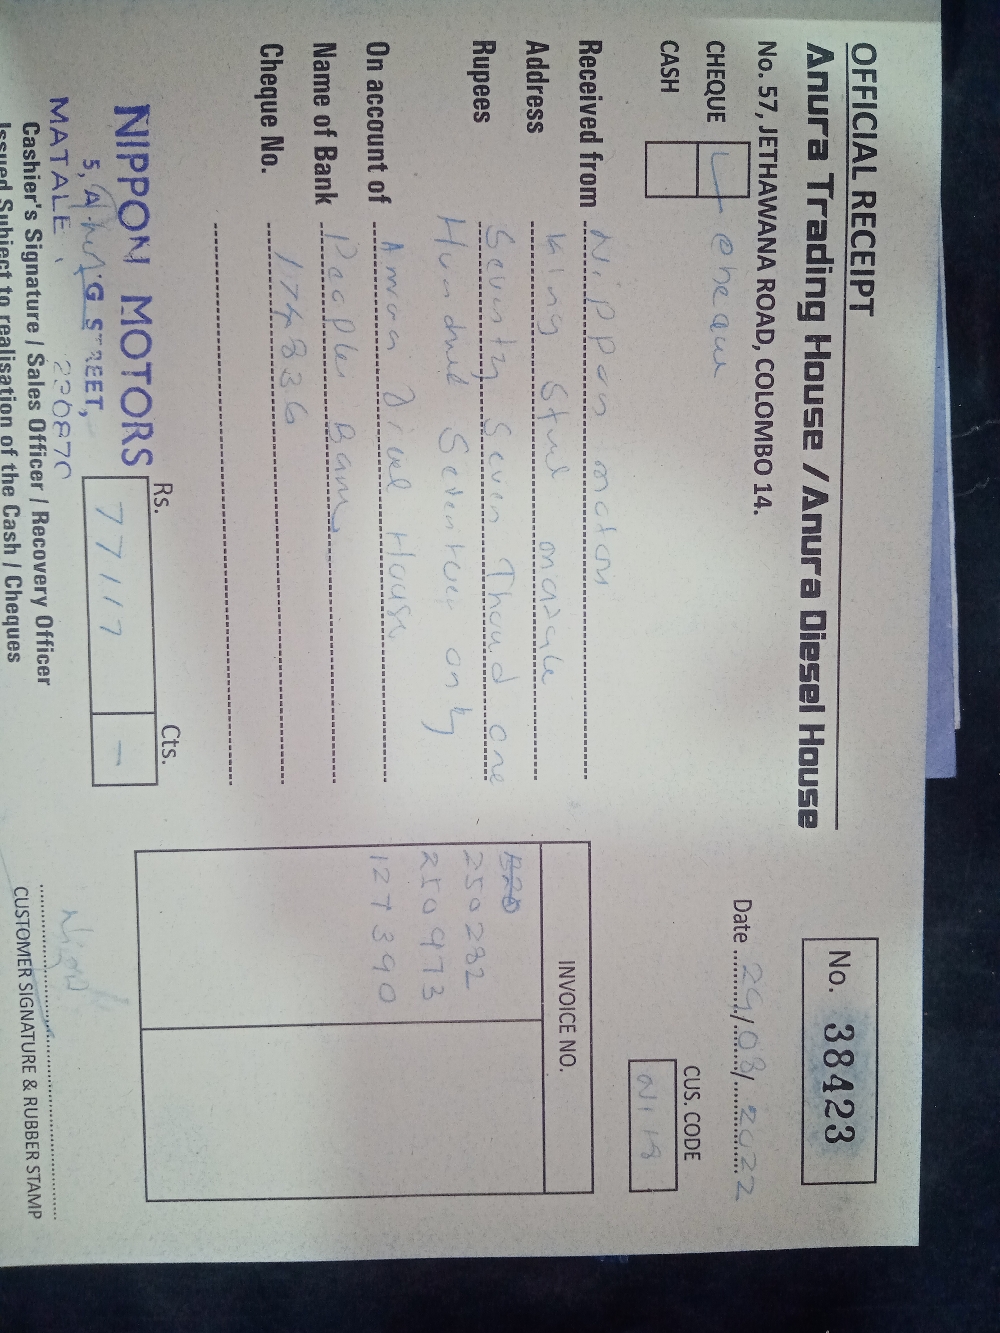 OFFICIAL RECEIPT
Anura Trading House / Anura Diesel House
No. 57, JETHAWANA ROAD, COLOMBO 14.
No. 38423
Date 29/08/2022
CHEQUE
CASH
CUS. CODE
Received from Nippon motors
Address King
Rupees Seventy Seven one
Seventeen only
On account of House
Name of Bank
Cheque No. 174836
INVOICE NO.
250282
250973
127390
Rs. Cts.
77117 -
NIPPON MOTORS
STREET,
MATALE.
Cashier's Signature / Sales Officer / Recovery Officer
Issued Subject to realisation of the Cash / Cheques
CUSTOMER SIGNATURE & RUBBER STAMP